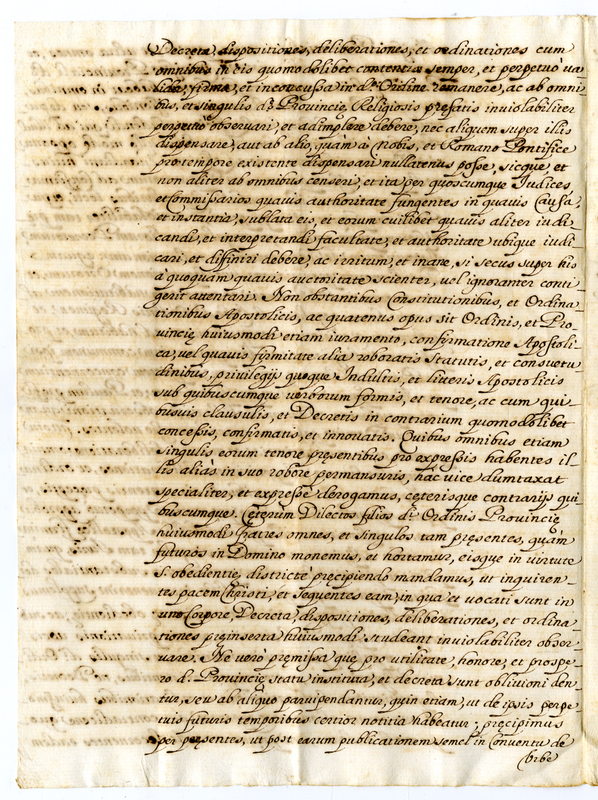 Decreta, dispositiones, deliberationes, et ordinationes cum
omnibus in eis quomodolibet contentis semper, et perpetuò va-
lida, firma, et inconcussa in d.º Ordine remanere, ac ab omni-
bus, et singulis d.ę Provincię Religiosis prefatis inviolabiliter
perpetuò observari, et adimplere debere, nec aliquem super illis
dispensare, aut ab alio, quam à Nobis, et Romano Pontifice
pro tempore existente dispensari nullatenus posse, sicque, et
non aliter ab omnibus censeri, et ita per quoscumque Judices,
et Commissarios quavis authoritate fungentes in quavis Causa,
et instantia, sublata eis, et eorum cuilibet quavis aliter iudi-
candi, et interpretandi facultate, et authoritate ubique iudi-
cari, et diffiniri debere, ac irritum, et inane, si secus super his
à quoquam quavis auctoritate scienter, vel ignoranter conti-
gerit attentari. Non obstantibus Constitutionibus, et Ordina-
tionibus Apostolicis, ac quatenus opus sit Ordinis, et Pro-
vincię huiusmodi etiam iuramento, confirmatione Apostoli-
ca, vel quavis firmitate alia roboratis Statutis, et consuetu-
dinibus, privilegijs quoque Indultis, et litteris Apostolicis
sub quibuscumque verborum formis, et tenore, ac cum qui-
busuis clausulis, et Decretis in contrarium quomodolibet
concessis, confirmatis, et innovatis. Quibus omnibus etiam
singulis eorum tenore presentibus pro expressis habentes il-
lis alias in suo robore permansuris, hac vice dumtaxat
specialiter, et expresse derogamus, cęterisque contrarijs qui-
buscumque. Cęterùm Dilectos filios d.i Ordinis Provincię
huiusmodi fratres omnes, et singulos tam pręsentes, quàm
futuros in Domino monemus, et hortamur, eisque in virtute
S. obedientię districtè pręcipiendo mandamus, ut inquiren-
tes pacem Christi, et sequentes eam, in qua et vocati sunt in
uno Corpore, Decreta, dispositiones, deliberationes, et ordina-
tiones pręinserta huiusmodi studeant inviolabiliter obser-
vare. Ne verò pręmissa que pro utilitate, honore, et prospe-
ro d. Provincię statu instituta, et decreta sunt oblivioni den-
tur, seu ab aliquo parvipendantur, quin etiam, ut de ipsis perpe-
tuis futuris temporibus certior notitia habeatur; pręcipimus
per pręsentes, ut post earum publicationem semel in Conventu de
Urbe